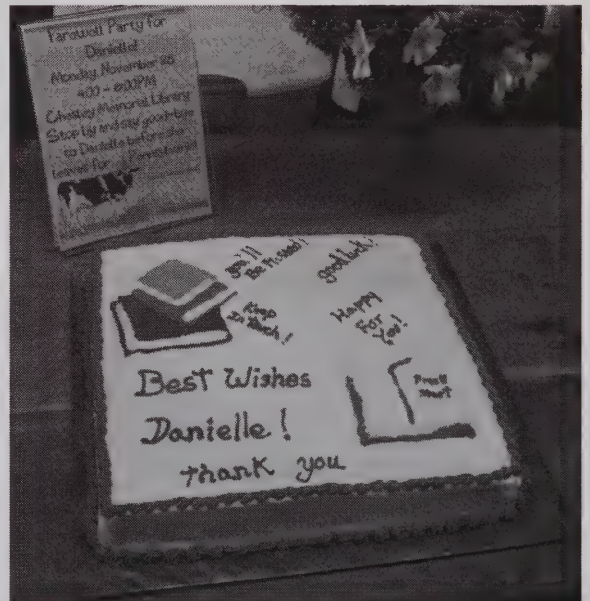 Farewell Party for
Danielle!
Monday, November 25
4:00 - 6:00PM
Chesley Memorial Library
Stop by and say good-bye
to Danielle before she
leaves for Connecticut
You'll
Be Missed!
good luck!
Keep
In Touch!
Happy
For
You!
Best Wishes
Danielle!
thank you